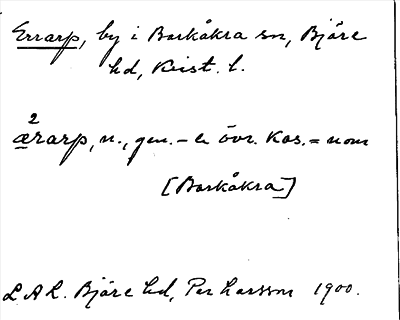 Errarp, by i Barkåkra sn, Bjäre
hd, Krist. l.
2
ærarp, n., gen. - er övr. Kas. = nom
[Barkåkra]
L A L. Bjäre hd, Per Larsson 1900.